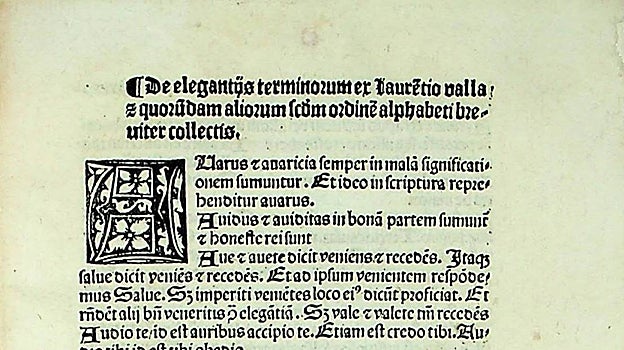 ¶ De elegantijs terminorum ex Laurẽtio valla
⁊ quorũdam aliorum scdm̃ ordinẽ alphabeti bre⸗
uiter collectis.
AUarus ⁊ auaricia semper in malã significati⸗
onem sumuntur. Et ideo in scriptura repre⸗
henditur auarus.
Auidus ⁊ auiditas in bonã partem sumunt̃
⁊ honeste rei sunt
Aue ⁊ auete dicit veniens ⁊ recedẽs. Itaqꝫ
salue dicit veniẽs ⁊ recedẽs. Et ad ipsum venientem respõde⸗
mus Salue. Sꝫ imperiti veniẽtes loco eiꝰ dicũt proficiat. Et
rñdẽt alij bñ veneritis ꝓ elegãtia. Sꝫ vale ⁊ valete tm̃ recedẽs
Audio te/id est auribus accipio te. Etiam est credo tibi. Au⸗
dio tibi id est tibi obedio